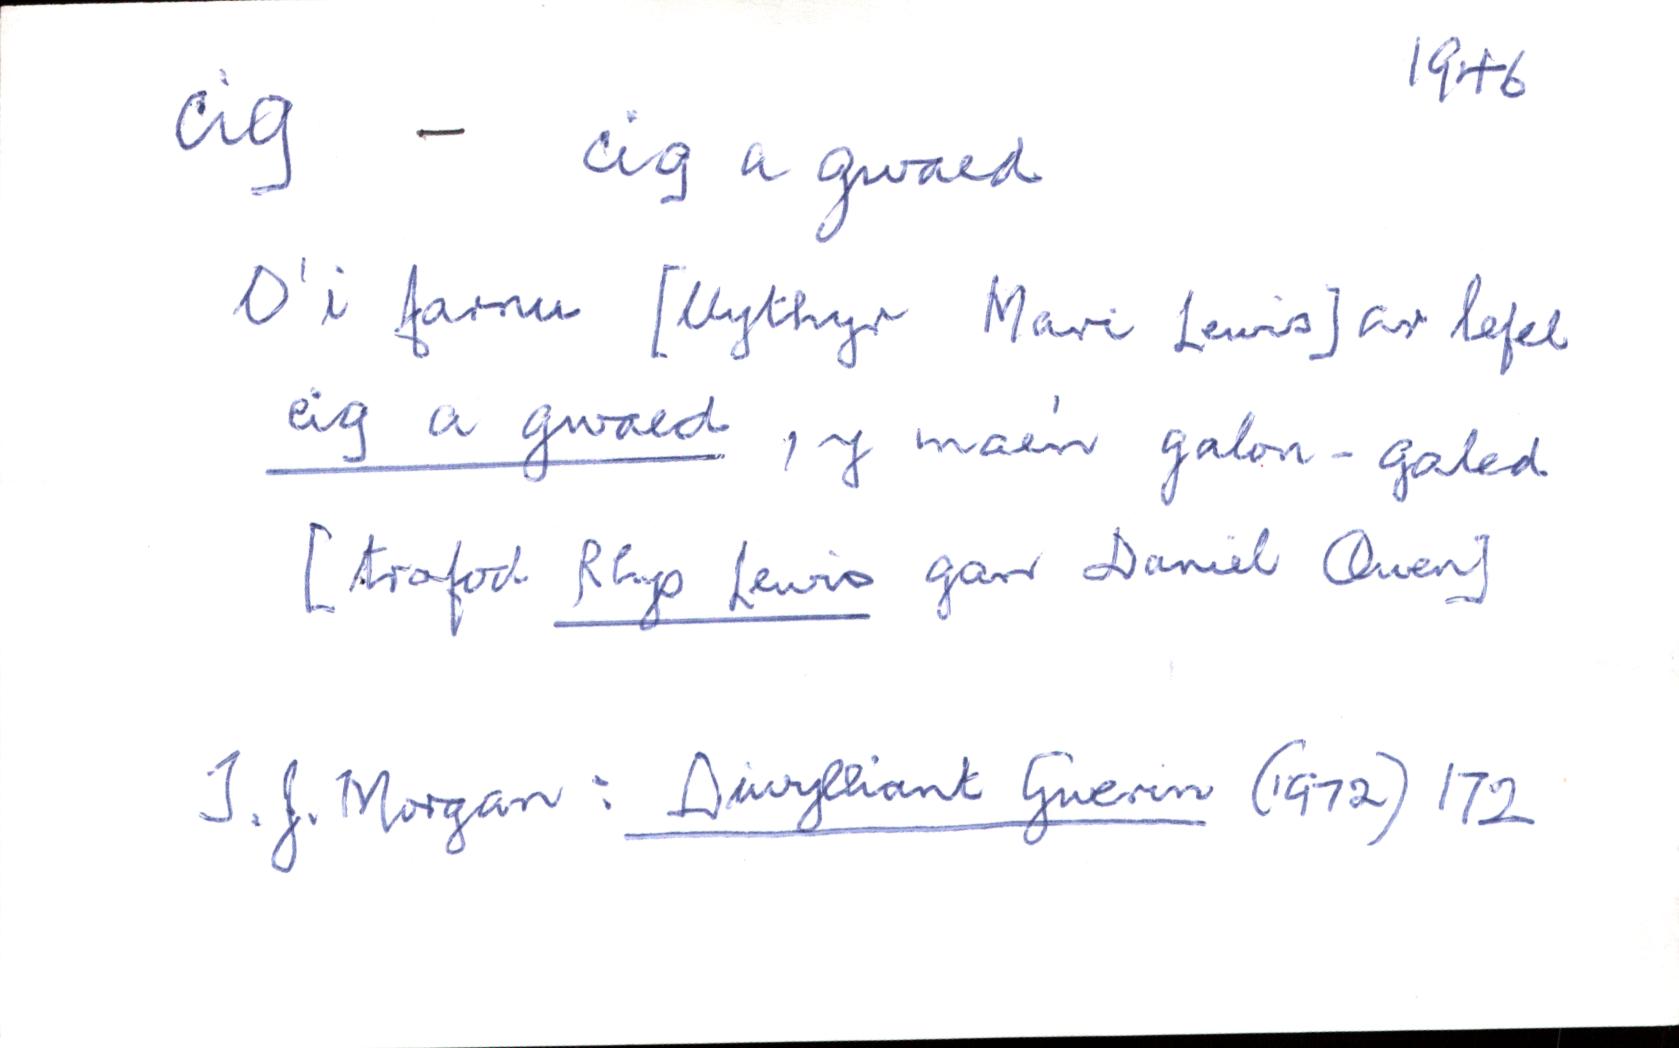 1946
cig – cig a gwaed
O'i farnu [llythyr Mari Lewis] ar lefel
cig a gwaed, y mae'n galon-galed
[trafod Rhys Lewis gan Daniel Owen]
T. J. Morgan: Diwylliant Gwerin (1972) 172